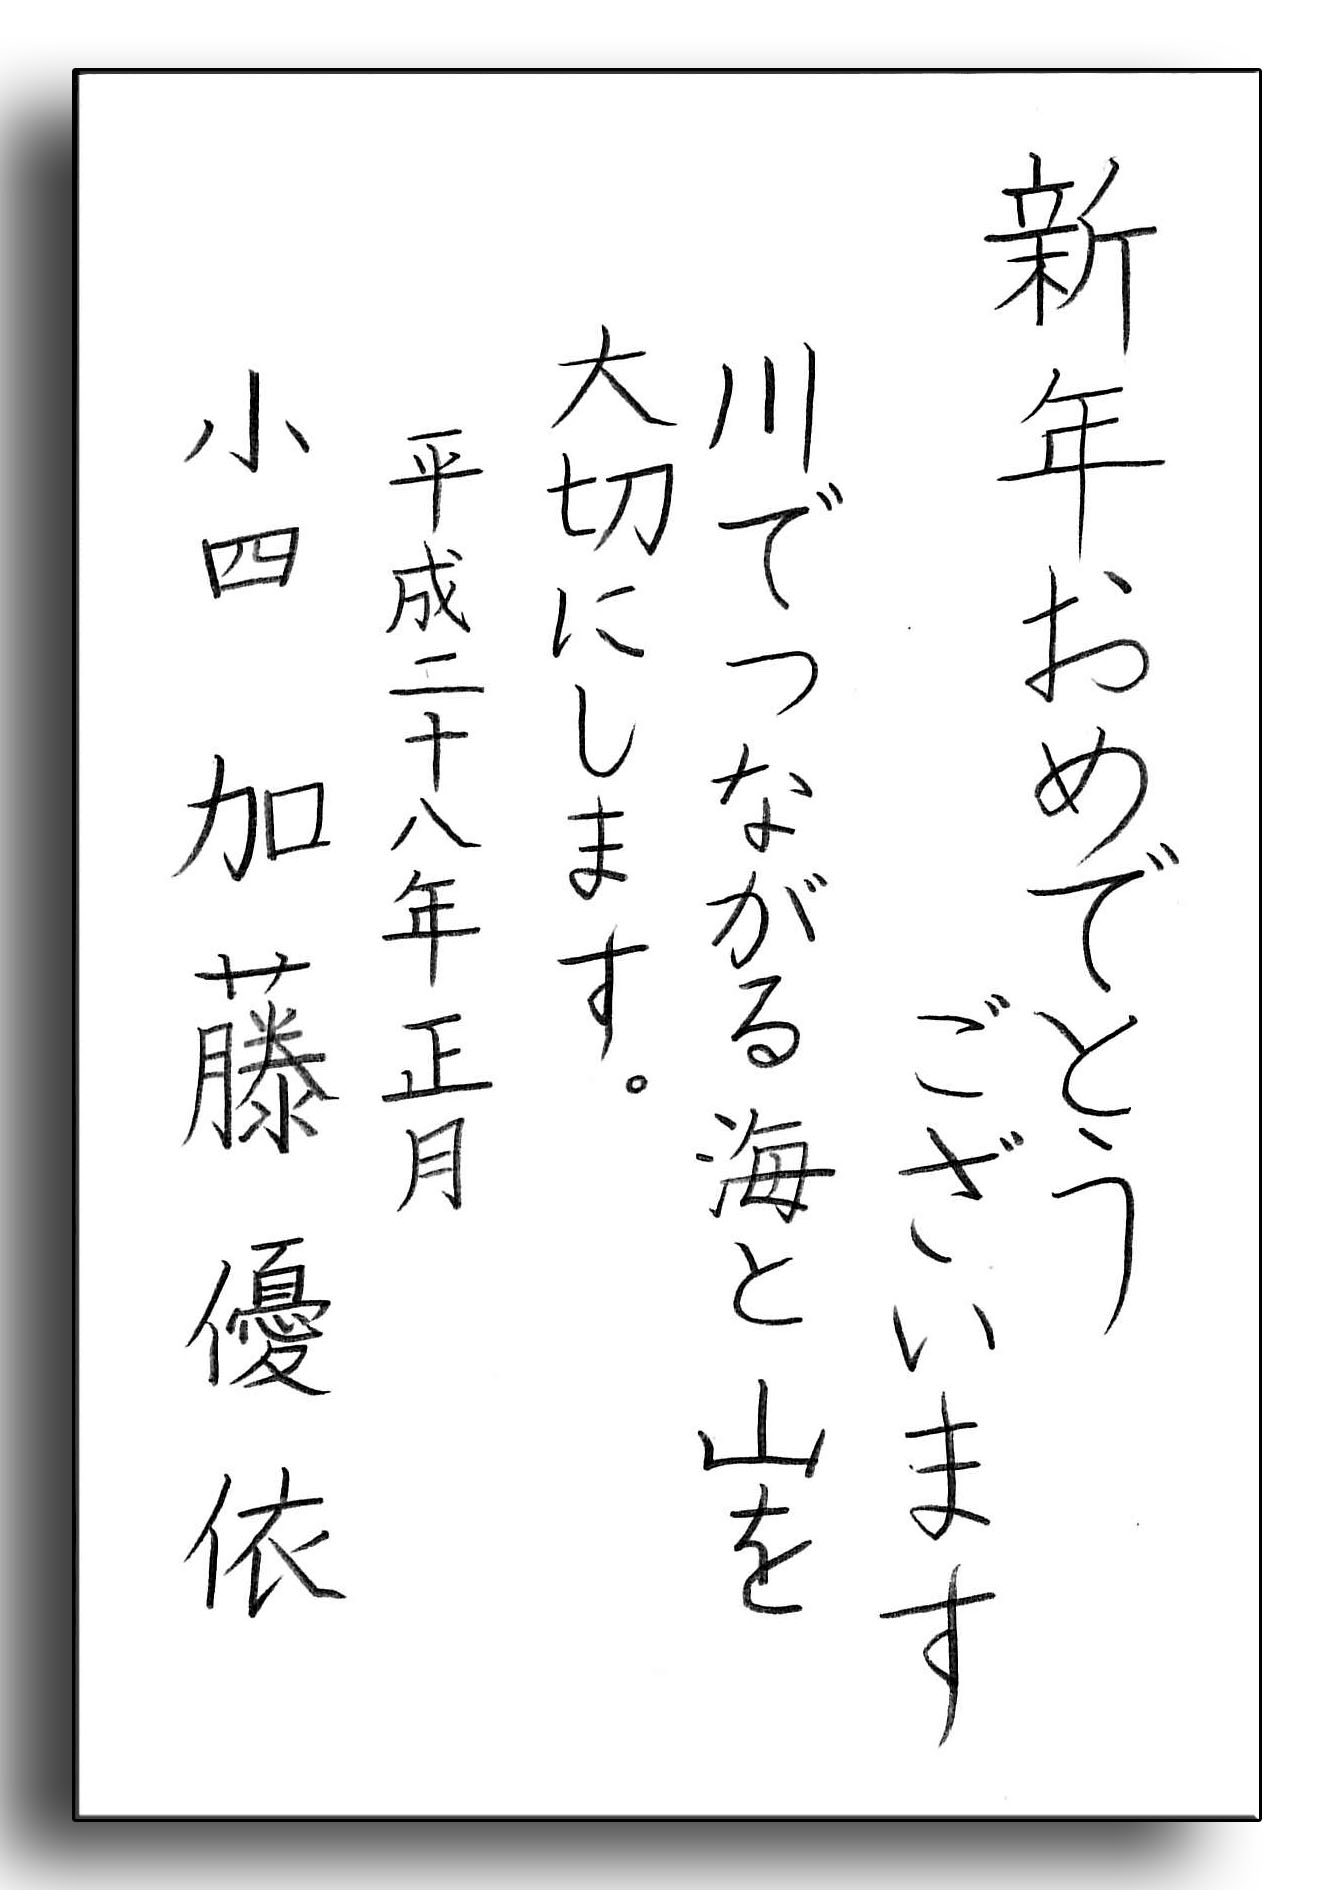 新年おめでとう
ございます
川でつながる海と山を
大切にします。
平成二十八年正月
小四 加藤優依